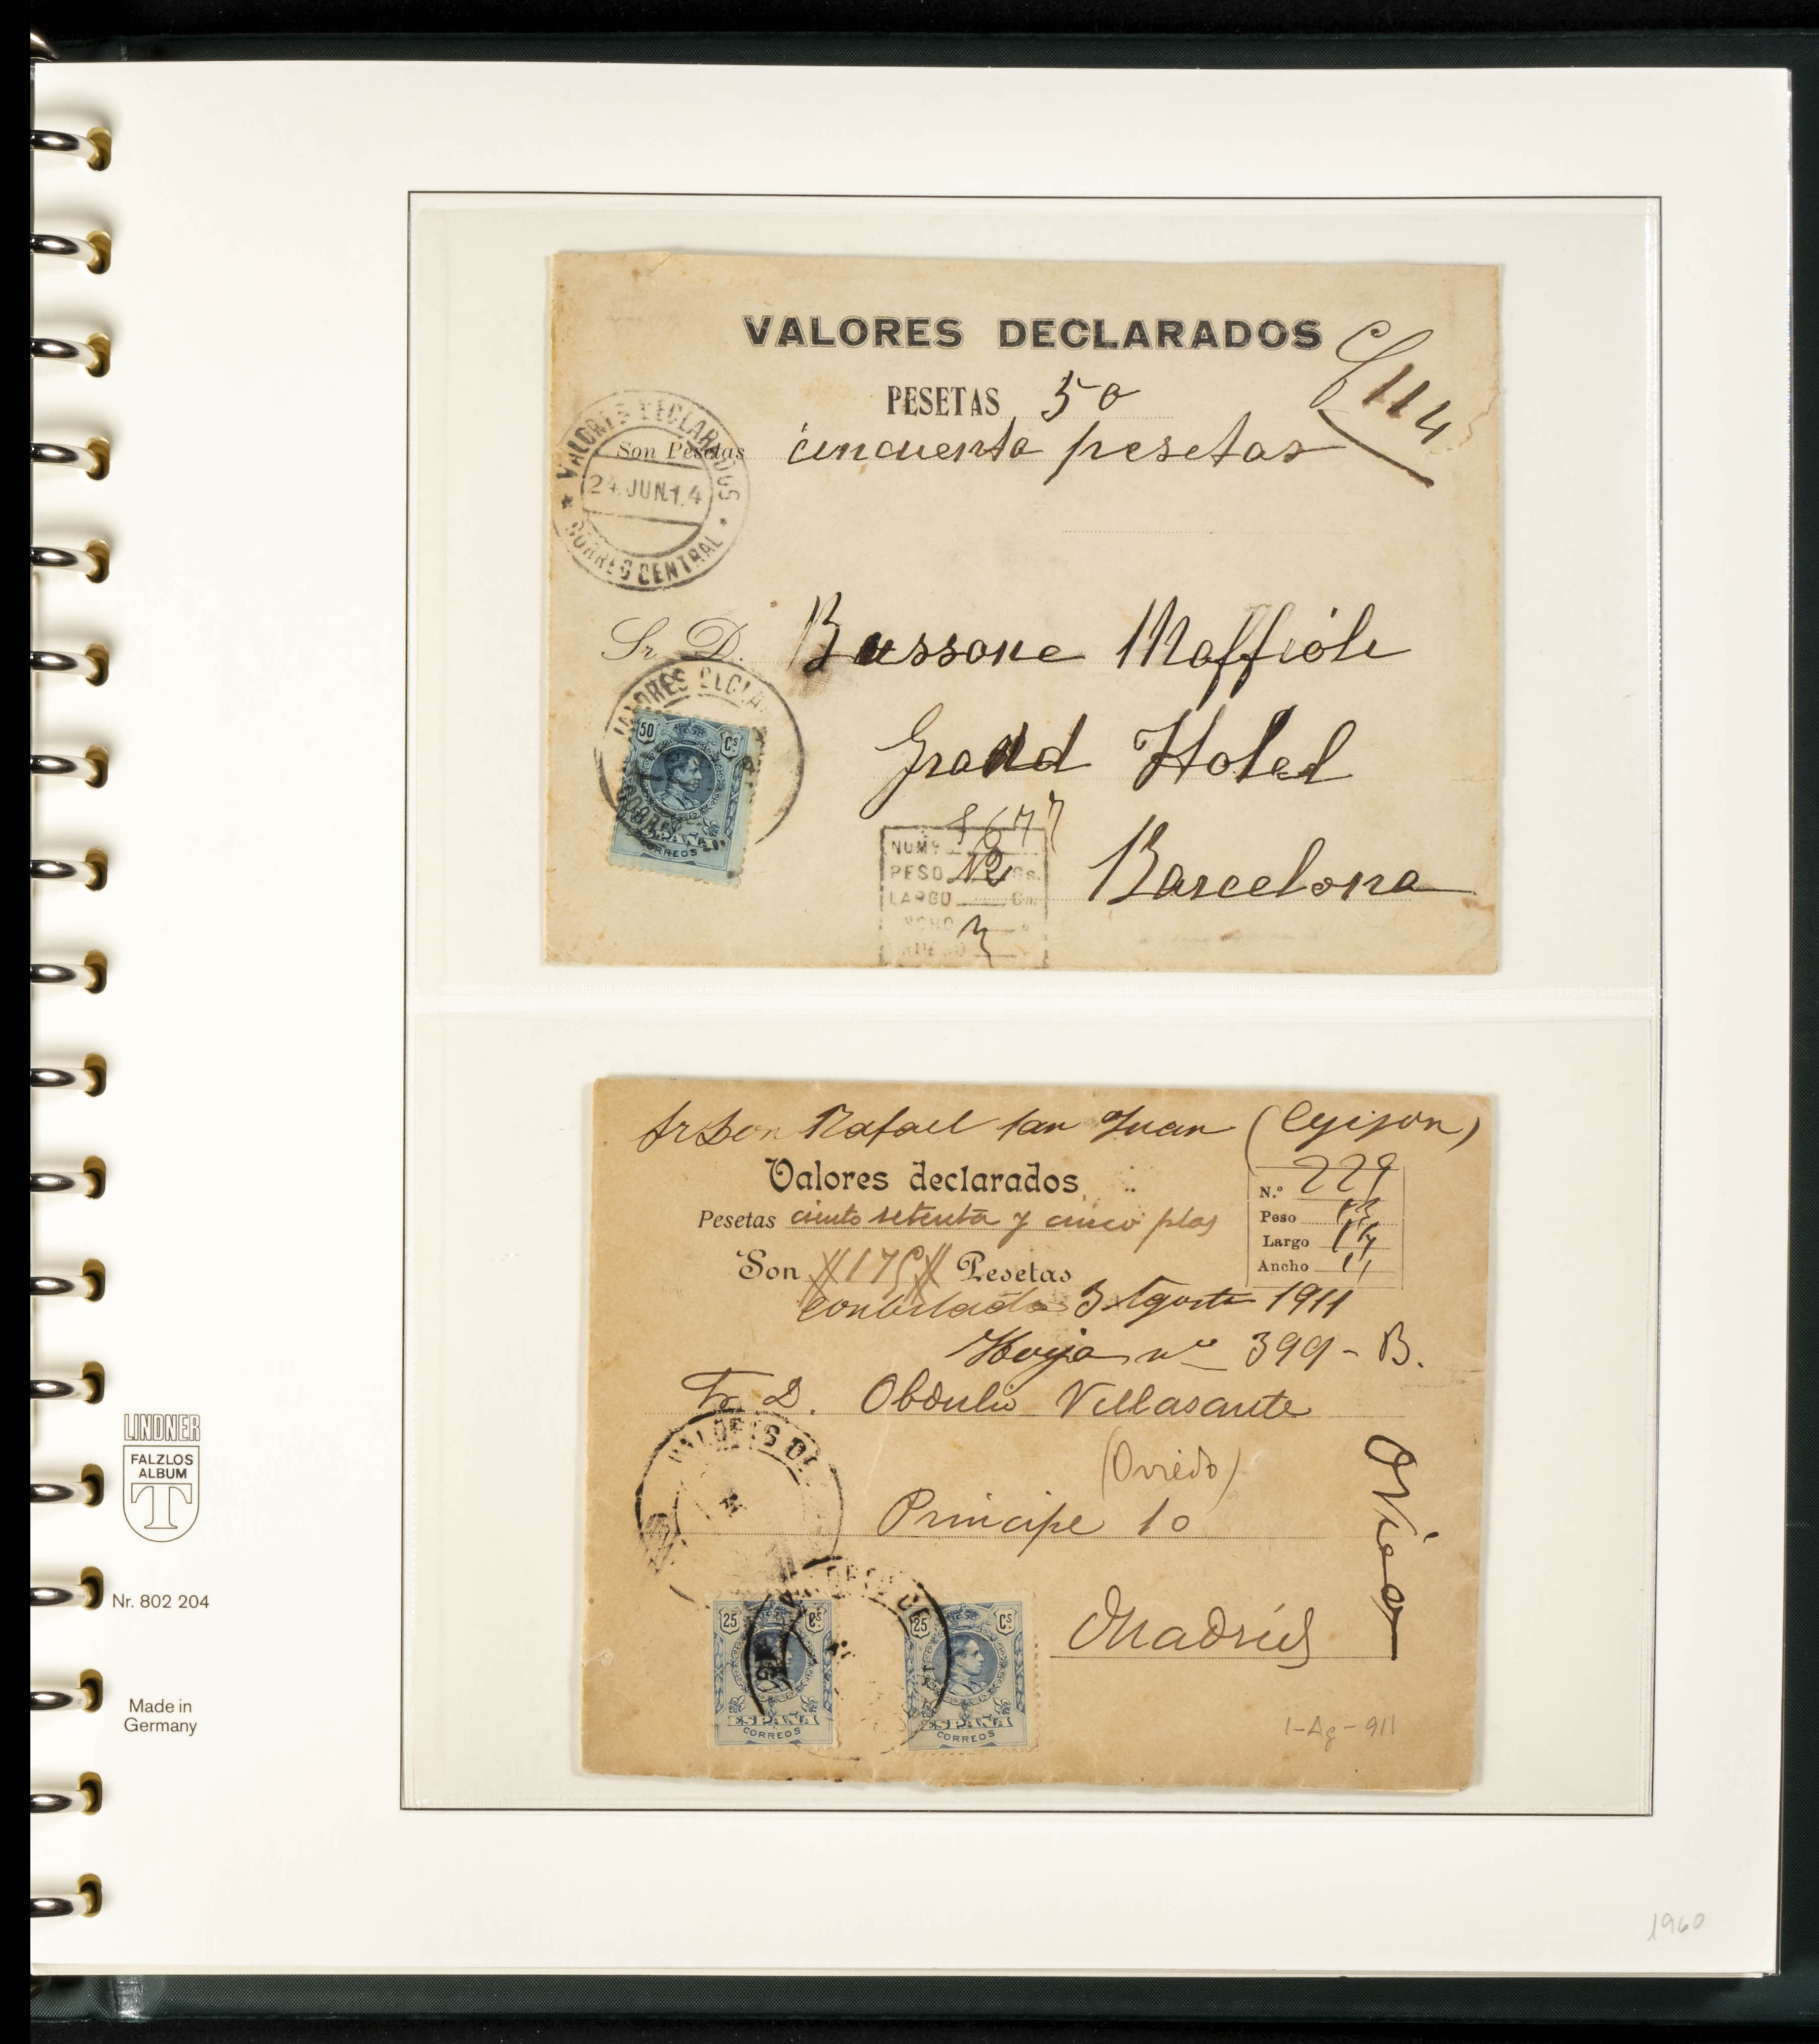 VALORES DECLARADOS
PESETAS 50
Son Pesetas cincuenta pesetas
VALORES DECLARADOS
24 JUN.14
CORREO CENTRAL
Sr. D. Bussone Maffioli
Grand Hotel
Barcelona
VALORES DECLA
50 Cs
ESPAÑA
CORREOS
NUM
PESO 12 Gs.
LARGO Cm
Sr Don Rafael San Juan (Gijon)
Valores declarados
Pesetas ciento setenta y cinco ptas
Son 175 Pesetas
N.º 229
Peso
Largo 14
Ancho 11
3 Agosto 1911
Hoja nº 399 - B.
Sr. D. Obdulio Villasante
(Oviedo)
Principe 10
Madrid
VALORES DE
25 Cs
ESPAÑA
CORREOS
25 Cs
ESPAÑA
CORREOS
1-Ag-911
LINDNER
FALZLOS
ALBUM
T
Nr. 802 204
Made in
Germany
1960